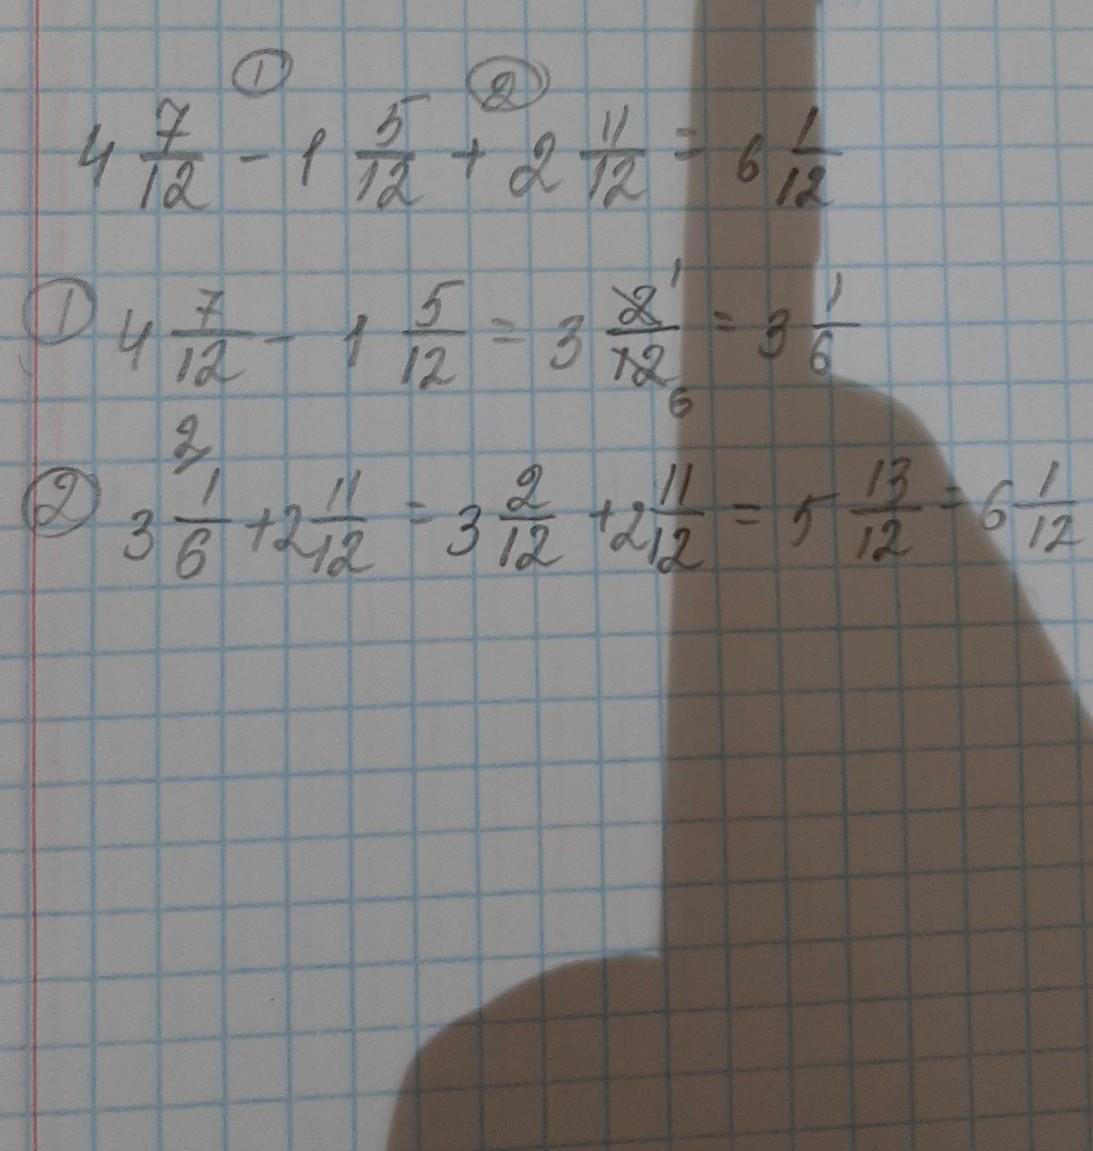 ① ②
4 7/12 - 1 5/12 + 2 11/12 = 6 1/12
① 4 7/12 - 1 5/12 = 3 2/12 = 3 1/6
1
6
2
② 3 1/6 + 2 11/12 = 3 2/12 + 2 11/12 = 5 13/12 = 6 1/12